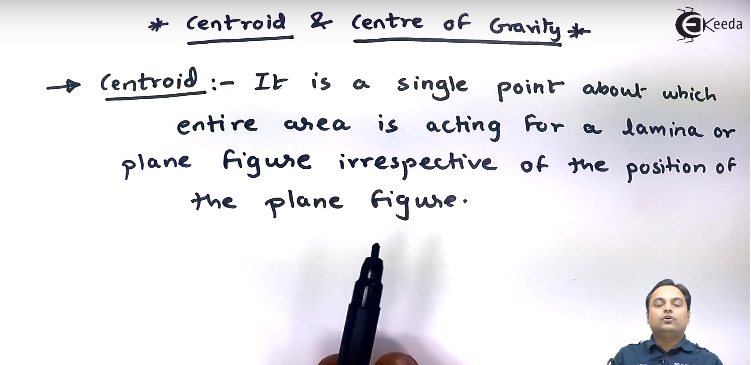 * Centroid & Centre of Gravity *
EKeeda
→ Centroid :- It is a single point about which
entire area is acting for a lamina or
plane figure irrespective of the position of
the plane figure.